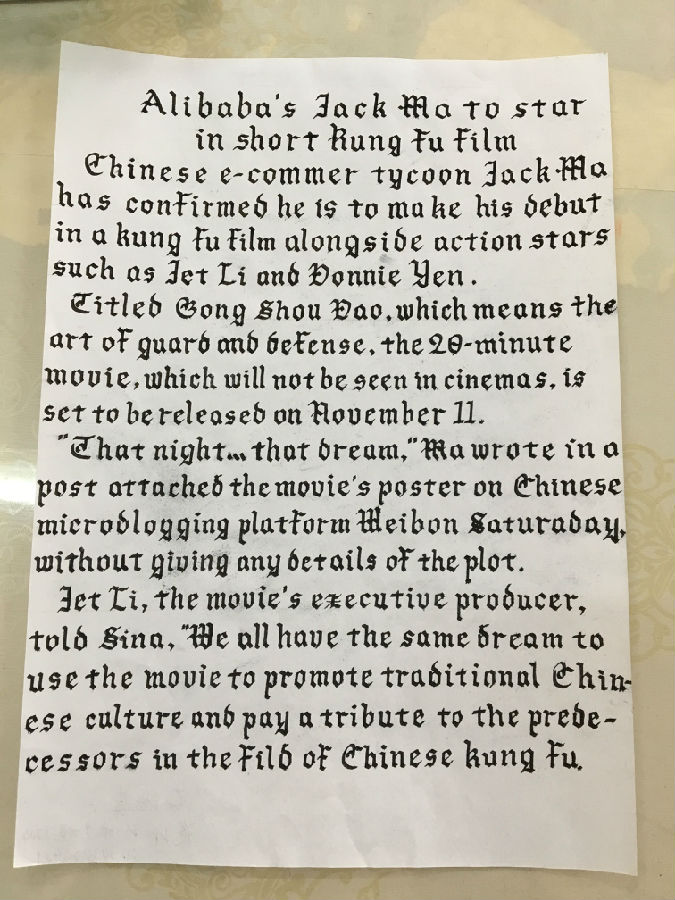 Alibaba's Jack Ma to star
in short Kung Fu Film
Chinese e-commer tycoon Jack Ma
has confirmed he is to make his debut
in a kung fu film alongside action stars
such as Jet Li and Donnie Yen.
Titled Gong Shou Dao, which means the
art of guard and defense, the 20-minute
movie, which will not be seen in cinemas, is
set to be released on November 11.
"That night... that dream," Ma wrote in a
post attached the movie's poster on Chinese
microdlogging platform Weibon Saturaday,
without giving any details of the plot.
Jet Li, the movie's executive producer,
told Sina, "We all have the same dream to
use the movie to promote traditional Chin-
ese culture and pay a tribute to the prede-
cessors in the fild of Chinese kung fu.